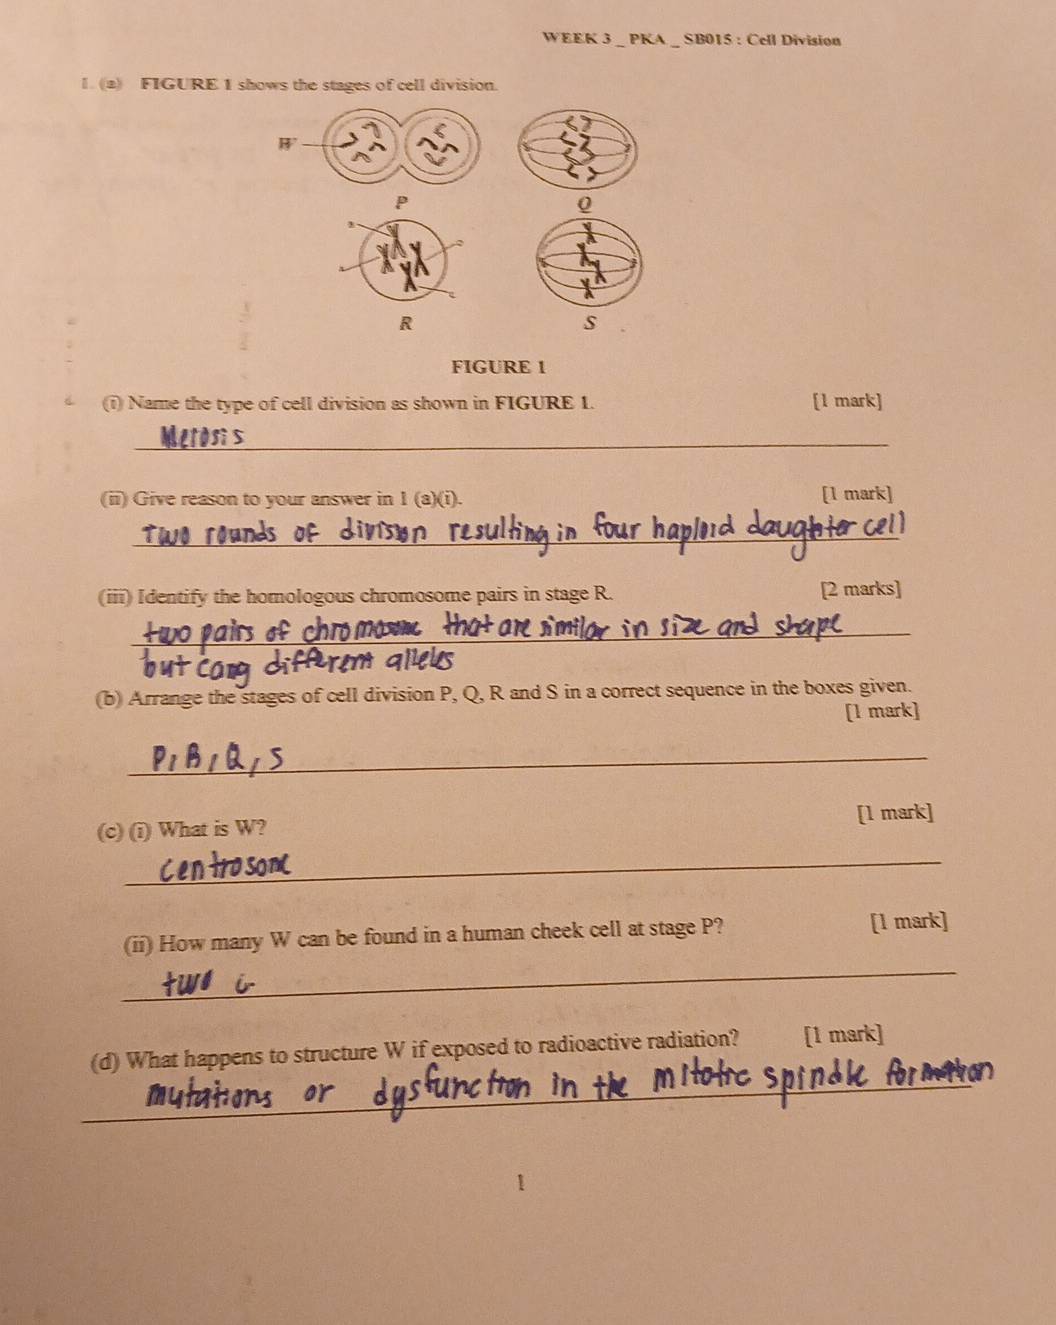 WEEK 3 _ PKA _ SB015 : Cell Division
1. (a) FIGURE 1 shows the stages of cell division.
W
P
Q
R
S
FIGURE 1
(i) Name the type of cell division as shown in FIGURE 1. [1 mark]
Meiosis
(ii) Give reason to your answer in 1 (a)(i). [1 mark]
Two rounds of division resulting in four haploid daughter cell
(iii) Identify the homologous chromosome pairs in stage R. [2 marks]
two pairs of chromosome that are similar in size and shape
but different alleles
(b) Arrange the stages of cell division P, Q, R and S in a correct sequence in the boxes given.
[1 mark]
P, B, Q, S
(c) (i) What is W? [1 mark]
Centrosome
(ii) How many W can be found in a human cheek cell at stage P? [1 mark]
two
(d) What happens to structure W if exposed to radioactive radiation? [1 mark]
mutations or dysfunction in the mitotic spindle formation
1